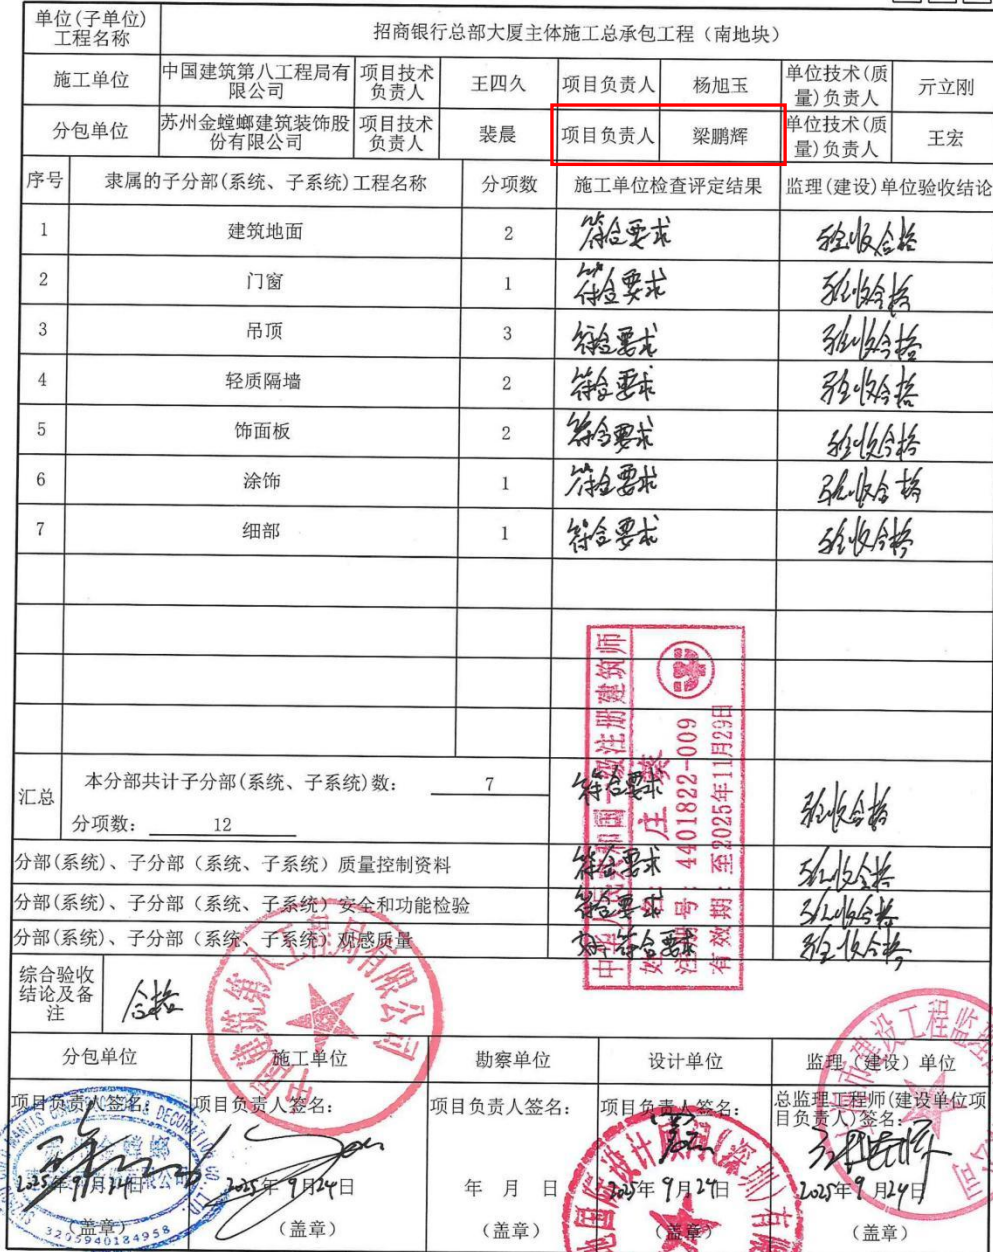 单位(子单位)
工程名称
招商银行总部大厦主体施工总承包工程（南地块）
施工单位
中国建筑第八工程局有
限公司
项目技术
负责人
王四久
项目负责人
杨旭玉
单位技术(质
量)负责人
亓立刚
分包单位
苏州金螳螂建筑装饰股
份有限公司
项目技术
负责人
裴晨
项目负责人
梁鹏辉
单位技术(质
量)负责人
王宏
序号 隶属的子分部(系统、子系统)工程名称 分项数 施工单位检查评定结果 监理(建设)单位验收结论
1 建筑地面 2 符合要求 验收合格
2 门窗 1 符合要求 验收合格
3 吊顶 3 符合要求 验收合格
4 轻质隔墙 2 符合要求 验收合格
5 饰面板 2 符合要求 验收合格
6 涂饰 1 符合要求 验收合格
7 细部 1 符合要求 验收合格
汇总
本分部共计子分部(系统、子系统)数： 7
分项数： 12
符合要求 验收合格
分部(系统)、子分部（系统、子系统）质量控制资料 符合要求 验收合格
分部(系统)、子分部（系统、子系统）安全和功能检验 符合要求 验收合格
分部(系统)、子分部（系统、子系统）观感质量 符合要求 验收合格
中华人民共和国一级注册建筑师
姓名：庄葵
注册号：4401822-009
有效期：至2025年11月29日
综合验收
结论及备
注
合格
中国建筑第八工程局有限公司
分包单位 施工单位 勘察单位 设计单位 监理（建设）单位
项目负责人签名： 项目负责人签名： 项目负责人签名： 项目负责人签名： 总监理工程师(建设单位项
目负责人)签名：
2025年9月24日 2025年9月24日 年 月 日 2025年9月24日 2025年9月24日
(盖章) (盖章) (盖章) (盖章) (盖章)
3205940184958